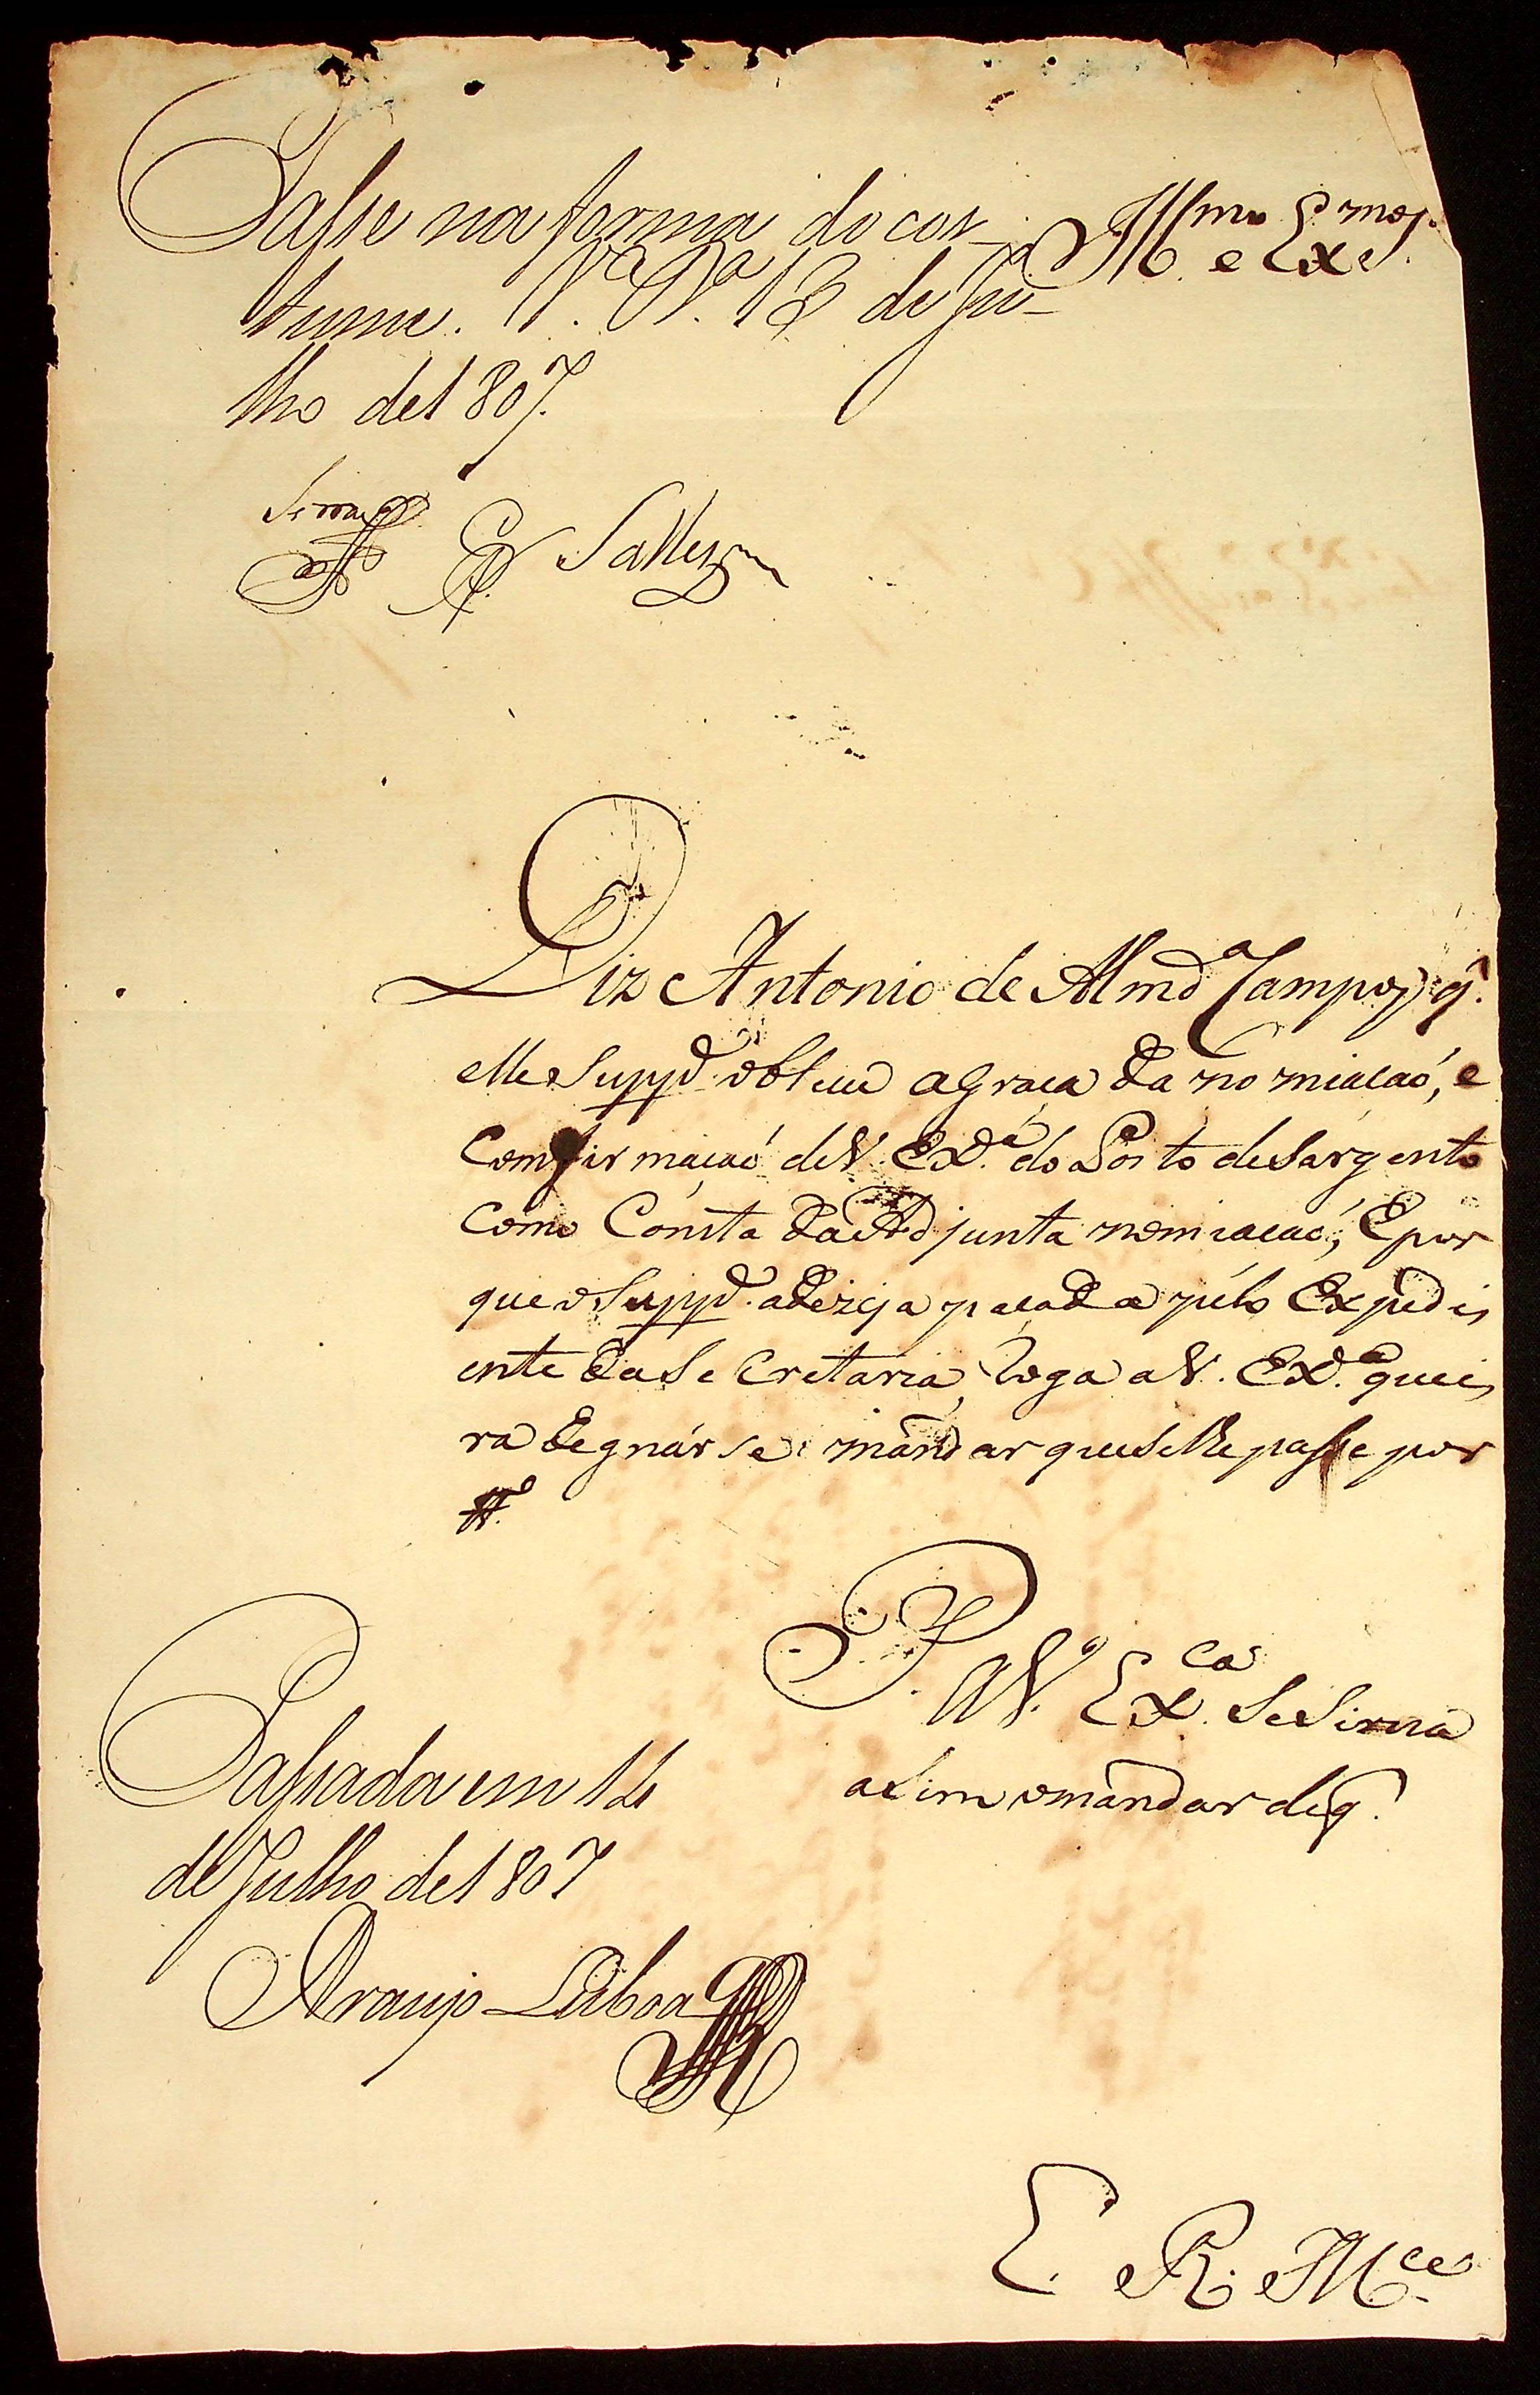 Passe na forma do cos-
tume. V.ª R.ª 13 de Ju-
lho de 1807.
Salles
Ill.mo e Ex.mo S.
Diz Antonio de Almd.a Campos q.
elle Supp.e obteue a graca da nomiacaó, e
Comfirmacaó de V. Ex.a do Posto de Sargento
como Consta da Adjunta nomiacaó, E por
que o Supp.e a dezeja pacada pelo Expedi
ente da Secretaria, Roga a V. Ex.a quei
ra degnár se mandar que se lhe passe por
tt.o
P. a V. Ex.ca Se Sirua
aSim o mandar de q.
Passada em 14
de Julho de 1807
Araujo Lisboa
E. R. M.ce